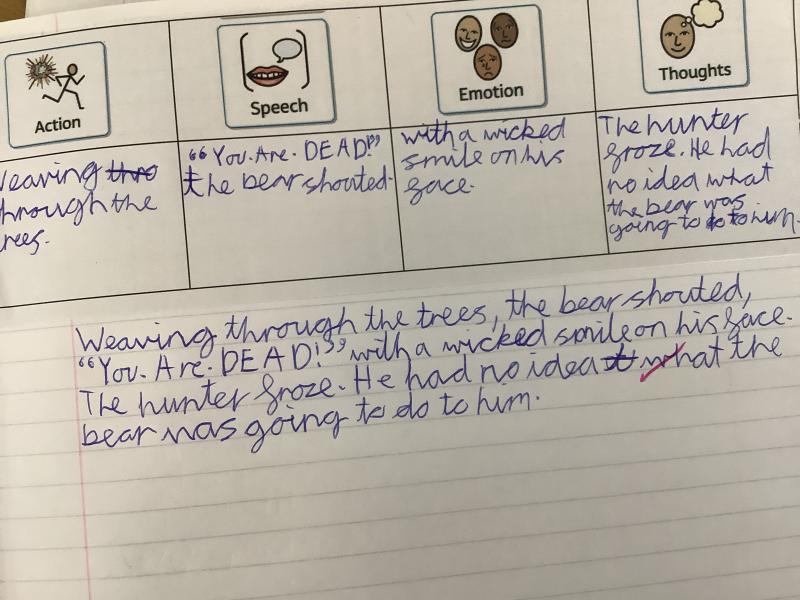 Action
Speech
Emotion
Thoughts
weaving thro
through the
trees.
“You. Are. DEAD!”
the bear shouted.
with a wicked
smile on his
face.
The hunter
froze. He had
no idea what
the bear was
going to do to him.
Weaving through the trees, the bear shouted,
“You. Are. DEAD!” with a wicked smile on his face.
The hunter froze. He had no idea what the
bear was going to do to him.